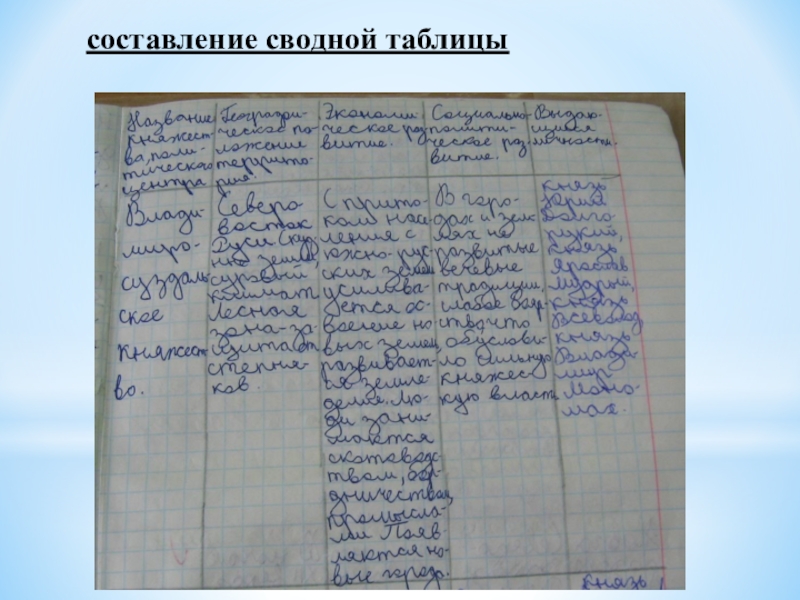 составление сводной таблицы
Название
княжест-
ва, поли-
тического
центра
Географи-
ческое по-
ложение
террито-
рия.
Экономи-
ческое раз-
витие.
Социально-
полити-
ческое раз-
витие.
Выдаю-
щиеся
личности.
Влади-
миро-
суздаль-
ское
княжест-
во.
Северо-
восток
Руси
земли,
суровый
климат
Лесная
зона-за-
щита от
степня-
ков.
С прито-
ком насе-
ления с
южно-рус-
ских земель
усилива-
ется ос-
воение но-
вых земель,
развивает-
ся земле-
делие. Лю-
ди зани-
маются
скотоводс-
твом,
промысла-
ми Появ-
ляются но-
вые города.
В горо-
дах и зем-
лях не
развитые
вечевые
традиции,
слабое бояр-
ство, что
обуслови-
ло сильную
княжес-
кую власть
князь
Юрий
Долго-
рукий,
князь
Ярослав
Мудрый,
князь
Всеволод,
князь
Влади-
мир
Моно-
мах.
князь